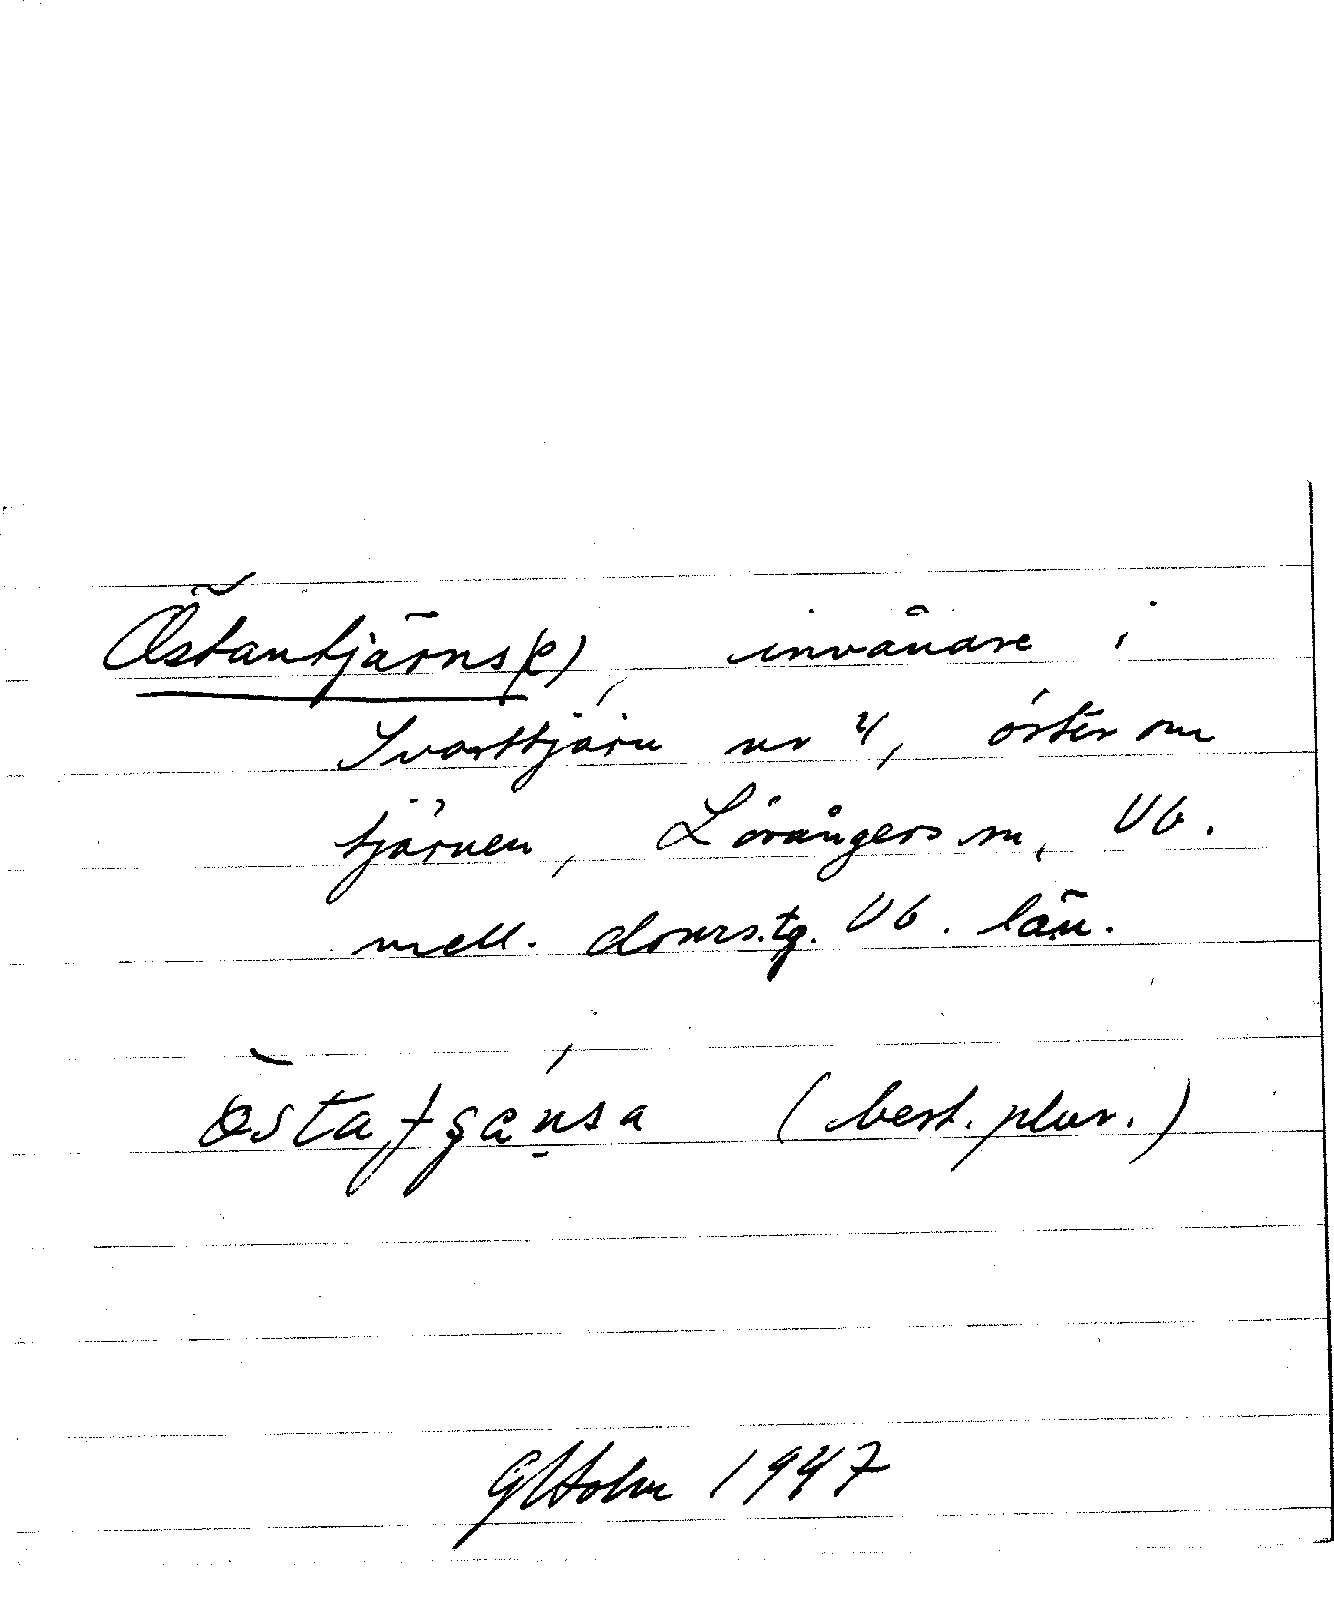 Östantjärns(e), invånare i
Svarttjärn nr 4, öster om
tjärnen, Lövångers sn, Vb.
mell. doms.tg. Vb. län.
(best. plur.)
GHolm 1947